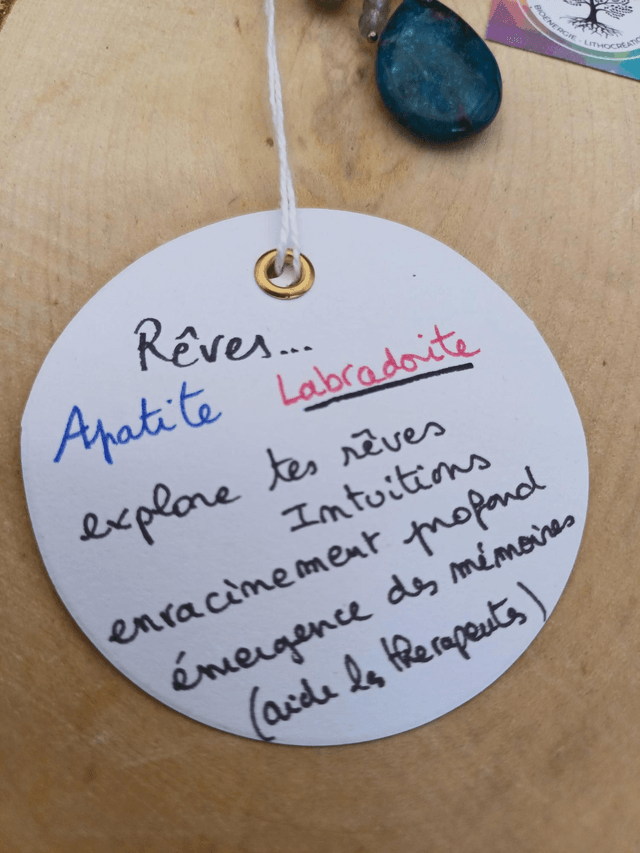 BIOÉNERGIE - LITHOCRÉATION
Rêves...
Apatite Labradorite
explore tes rêves
Intuitions
enracinement profond
émergence des mémoires
(aide les therapeutes)